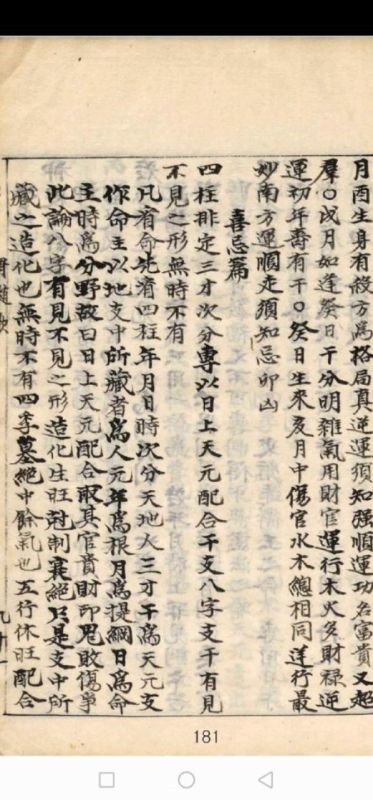 月酉生身有殺方為格局真逆運須知强順運功名富貴又超
羣○戌月如逢癸日干分明雜氣用財官運行木火多財祿逆
運初年壽有干○癸日生來亥月中傷官水木總相同逆行最
妙南方運順走須知忌卯山
喜忌篇
四柱排定三才次分專以日上天元配合干支八字支干有見
不見之形無時不有
凡看命先看四柱年月日時次分天地人三才干為天元支
作命主以地支中所藏者為人元年為根月為提綱日為命
主時為分野故曰日上天元配合取其官貴財印
敗傷爭
此論八字有見不見之形造化生旺尅制衰絕只是支中所
藏之造化也無時不有四季墓絕中餘氣也五行休旺配合
181